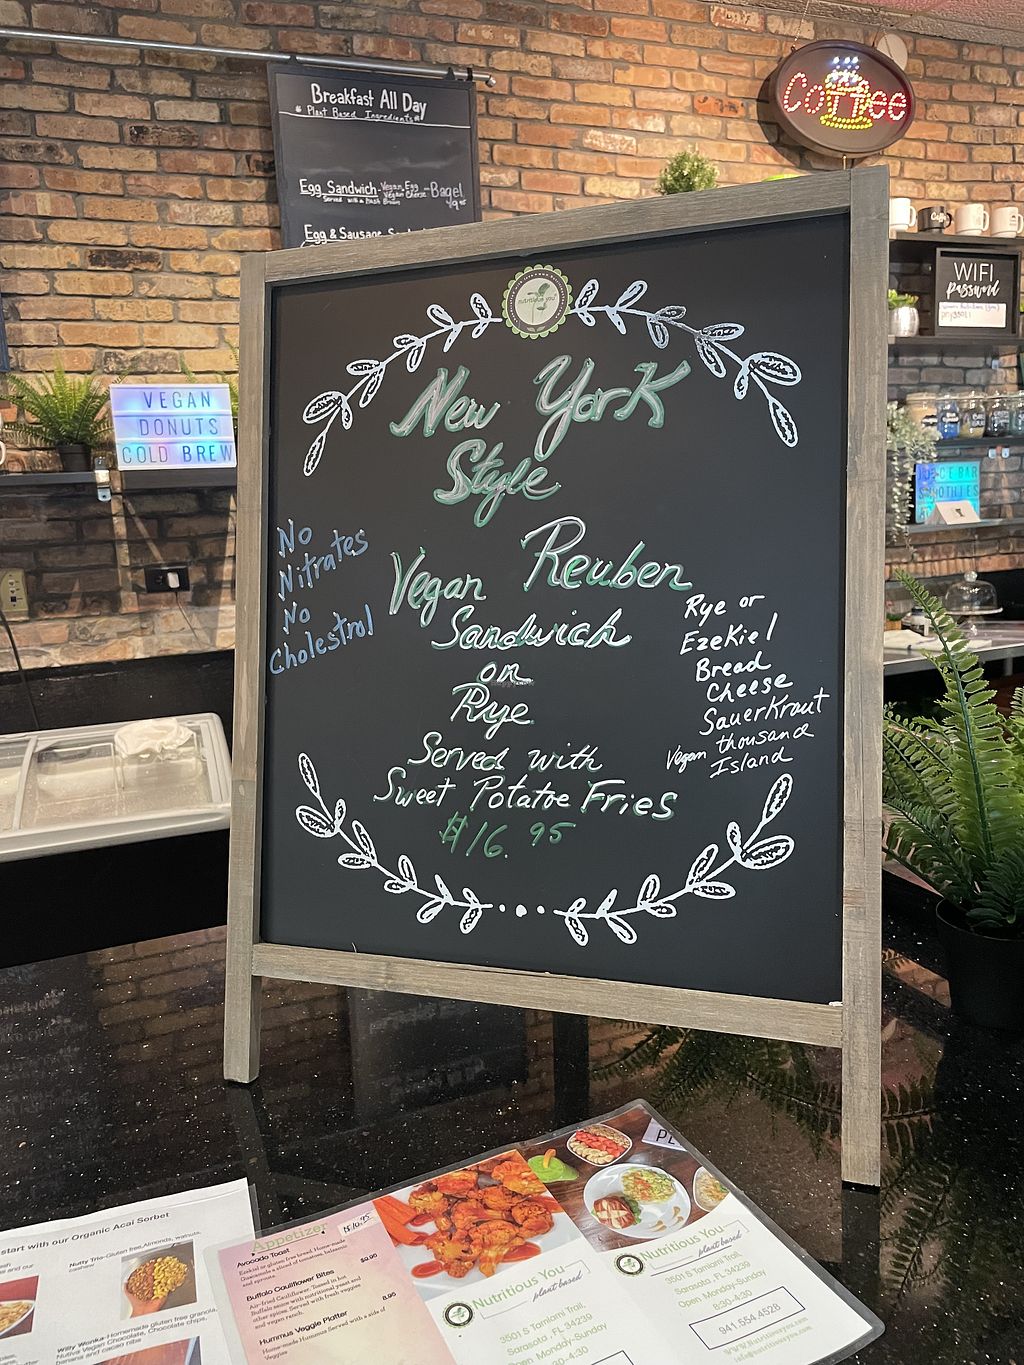 Breakfast All Day
* Plant Based Ingredients *
Egg Sandwich - Vegan Egg - Bagel
Vegan Cheese
Served with a Hash Brown
Egg & Sausage
Coffee
WIFI
password
VEGAN
DONUTS
COLD BREW
nutritious you
New York
Style
Vegan Reuben
Sandwich
on
Rye
Served with
Sweet Potatoe Fries
$16.95
No
Nitrates
No
Cholestrol
Rye or
Ezekiel
Bread
Cheese
SauerKraut
Vegan thousand
Island
start with our Organic Acai Sorbet
Nutty Trio-Gluten free, Almonds, walnuts,
cashew
Willy Wonka-Homemade gluten free granola,
Native Vegan Chocolate, Chocolate chips,
banana and cacao nibs
Appetizer
Avocado Toast
$9.90
Ezekiel or gluten free bread, Home-made
Guacamole a sliced of tomatoes, balsamic
and sprouts.
Buffalo Cauliflower Bites
8.95
Air-fried Cauliflower. Tossed in hot
Buffalo sauce with nutritional yeast and
other spices. Served with fresh veggies
and vegan ranch.
Hummus Veggie Platter
Home-made Hummus Served with a side of
Veggies
Nutritious You
plant based
3501 S Tamiami Trail,
Sarasota, FL 34239
Open Monday-Sunday
8:30-4:30
Nutritious You
plant based
3501 S Tamiami Trail,
Sarasota, FL 34239
Open Monday-Sunday
8:30-4:30
941.554.4528